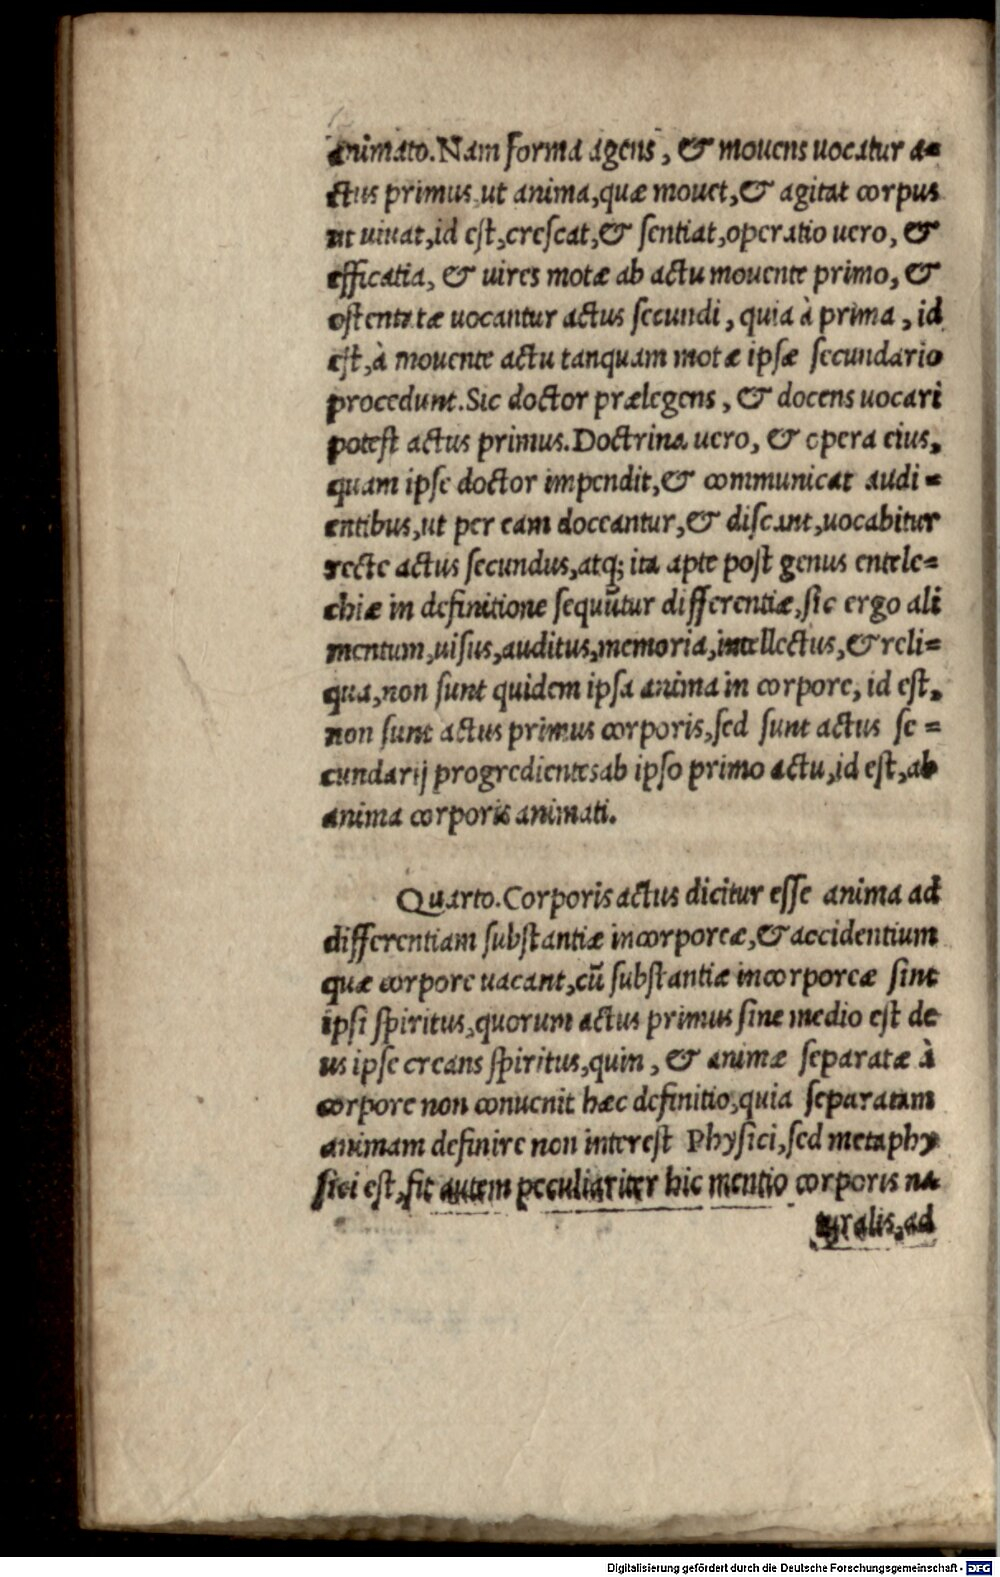 animato. Nam forma agens, & mouens uocatur a=
ctus primus ut anima, quæ mouet, & agitat corpus
ut uiuat, id est, crescat, & sentiat, operatio uero, &
efficatia, & uires motæ ab actu mouente primo, &
ostentatæ uocantur actus secundi, quia à prima, id
est, à mouente actu tanquam motæ ipsæ secundario
procedunt. Sic doctor prælegens, & docens uocari
potest actus primus. Doctrina uero, & opera eius,
quam ipse doctor impendit, & communicat audi=
entibus, ut per eam doceantur, & discant, uocabitur
recte actus secundus, atq; ita apte post genus entele=
chiæ in definitione sequũtur differentiæ, sic ergo ali
mentum, uisus, auditus, memoria, intellectus, & reli=
qua, non sunt quidem ipsa anima in corpore, id est,
non sunt actus primus corporis, sed sunt actus se=
cundarij progredientes ab ipso primo actu, id est, ab
anima corporis animati.
Quarto. Corporis actus dicitur esse anima ad
differentiam substantiæ incorporeæ, & accidentium
quæ corpore uacant, cũ substantiæ incorporeæ sint
ipsi spiritus, quorum actus primus sine medio est de
us ipse creans spiritus, quin, & animæ separatæ à
corpore non conuenit hæc definitio, quia separatam
animam definire non interest Physici, sed metaphy
sici est, fit autem peculiariter hic mentio corporis na
turalis, ad
Digitalisierung gefördert durch die Deutsche Forschungsgemeinschaft - DFG